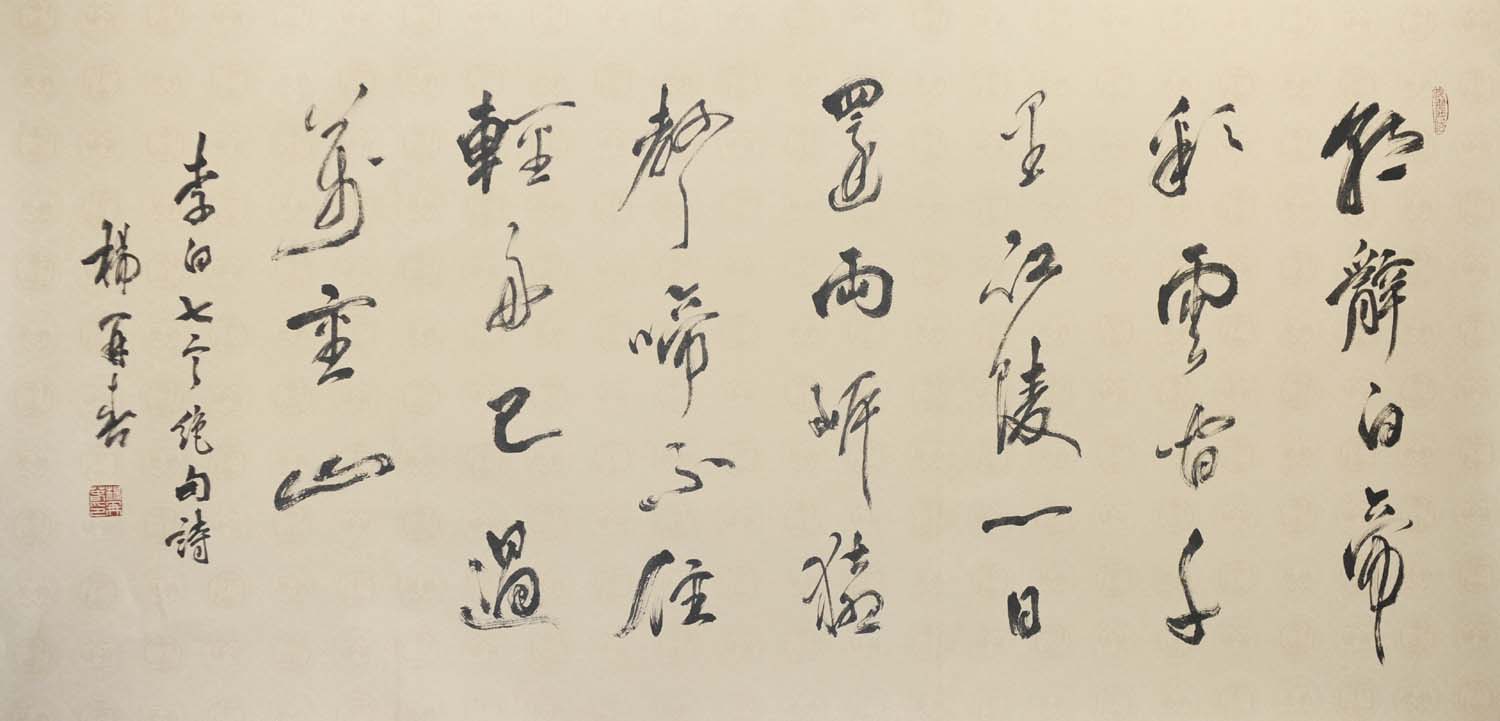 朝辭白帝
彩雲間千
里江陵一日
還兩岸猿
聲啼不住
輕舟已過
萬重山
李白七言絕句詩
楊再春
楊再春印